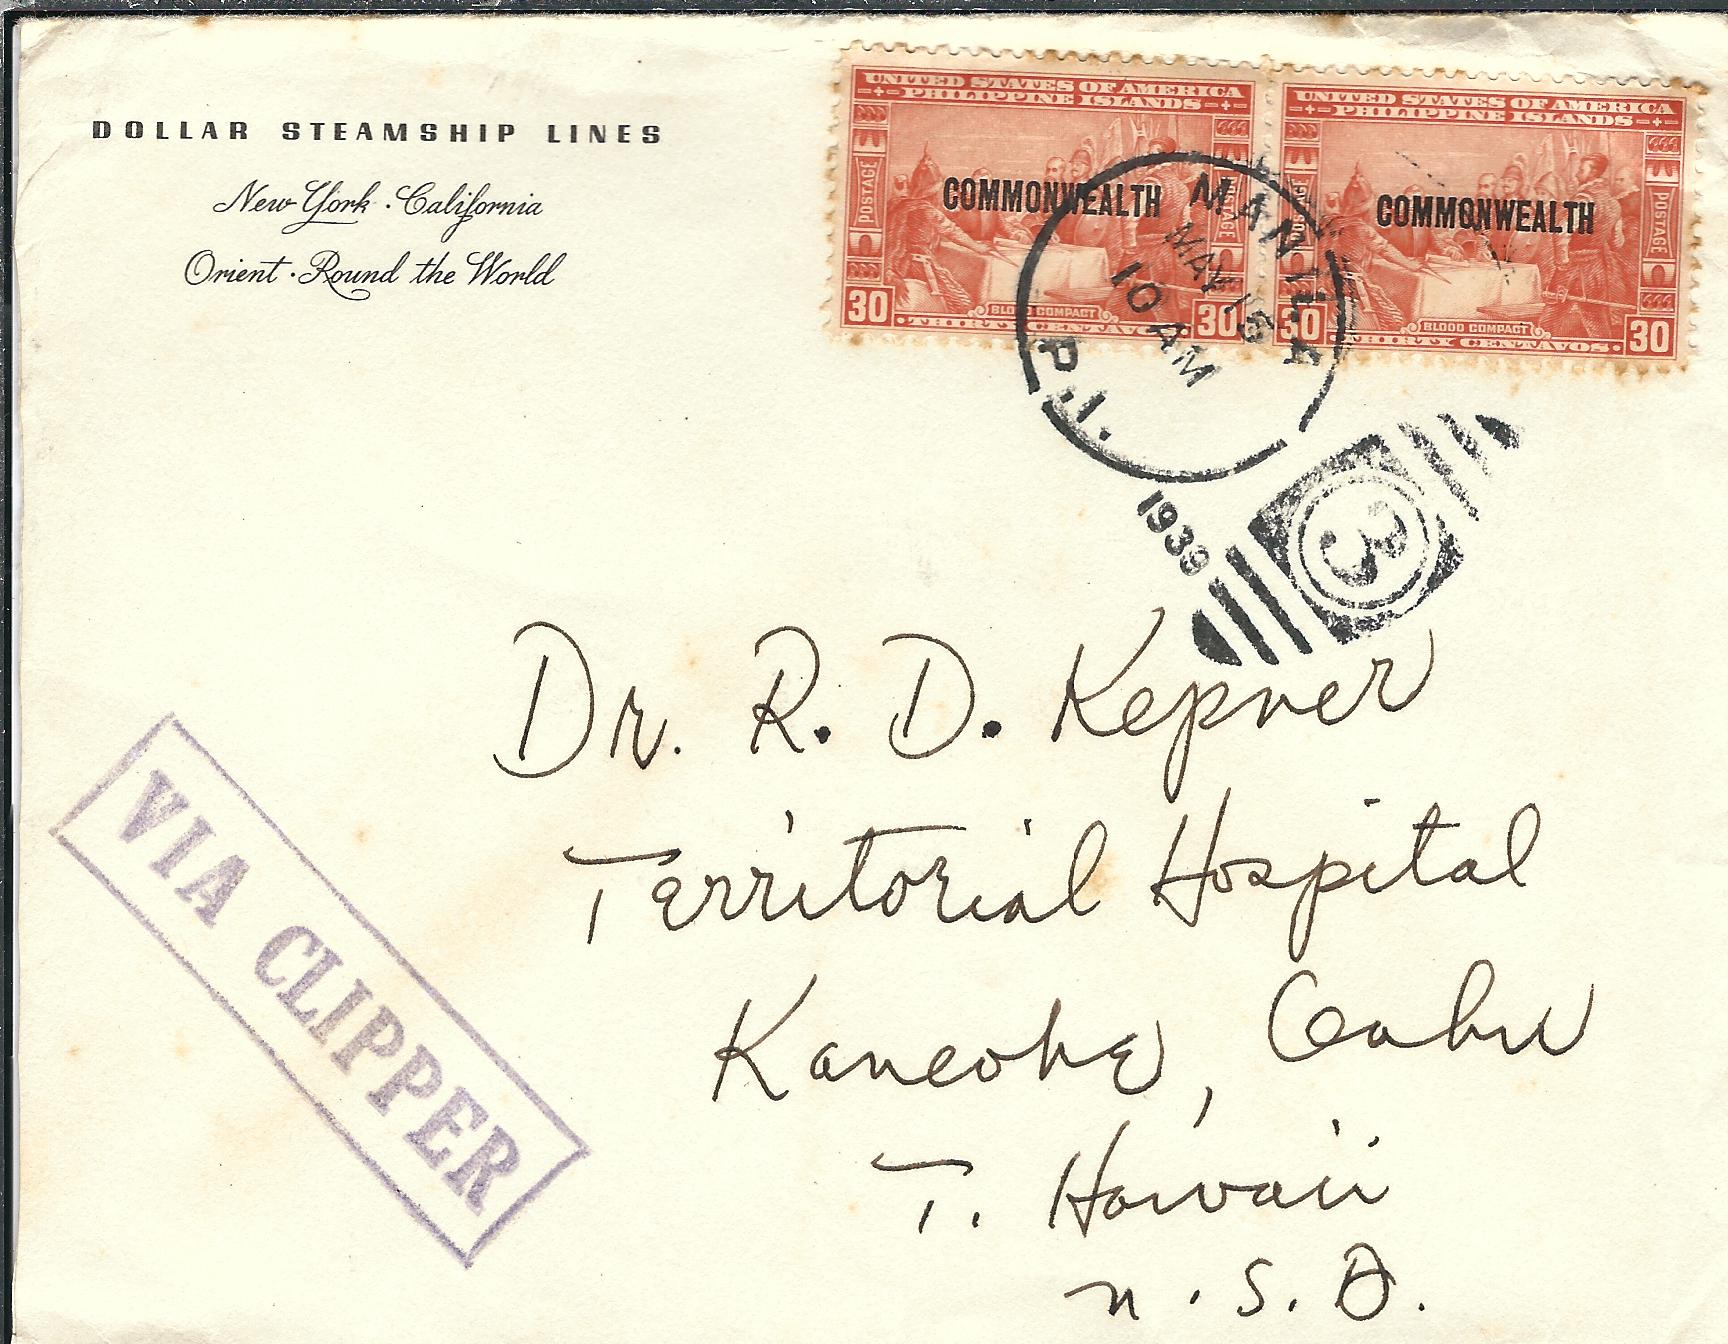 DOLLAR STEAMSHIP LINES
New York · California
Orient · Round the World
UNITED STATES OF AMERICA
PHILIPPINE ISLANDS
POSTAGE
POSTAGE
COMMONWEALTH
BLOOD COMPACT
30 30
THIRTY CENTAVOS
UNITED STATES OF AMERICA
PHILIPPINE ISLANDS
POSTAGE
COMMONWEALTH
BLOOD COMPACT
30 30
THIRTY CENTAVOS
MANILA
MAY 15
10 AM
P.I.
1939
3
Dr. R. D. Kepner
Territorial Hospital
Kaneohe, Oahu
T. Hawaii
U.S.A.
VIA CLIPPER